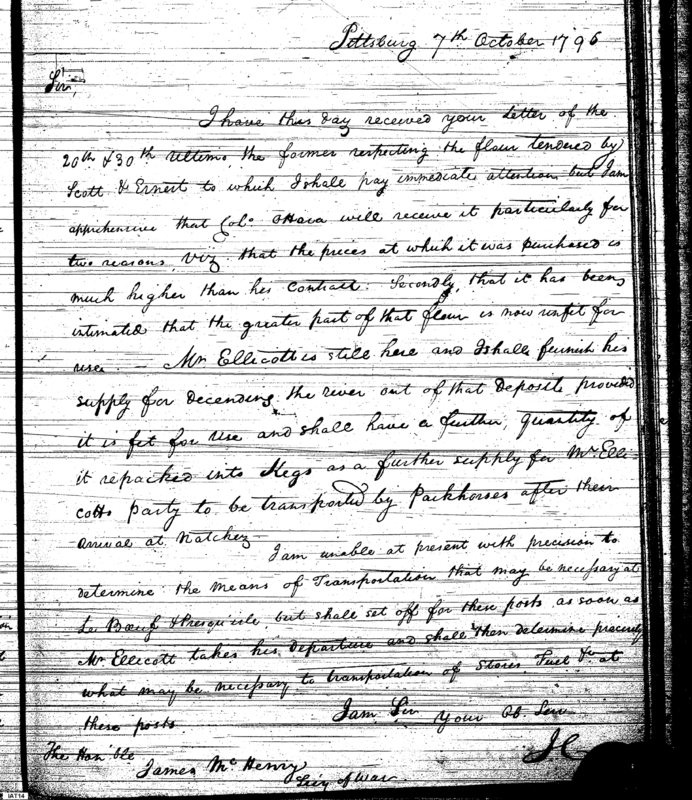 Pittsburg 7th October 1796
Sir,
I have this day received your Letter of the
20th & 30th Ultimo, the former respecting the flour tendered by
Scott & Ernest to which I shall pay immediate attention but I am
apprehensive that Colo. OHara will receive it particularly for
two reasons, Viz. that the prices at which it was purchased is
much higher than his Contract. Secondly, that it has been
intimated that the greater part of that flour is now unfit for
use. — Mr Ellicott is still here and I shall furnish his
supply for decending the river out of that Deposite, provided
it is fit for use and shall have a further, quantity of
it repacked into Kegs as a further supply for Mr Elli=
cotts party to be transported by Packhorses after their
arrival at Natchez —
I am unable at present with precision to
determine the means of Transportation that may be necessary at
Le Boeuf & Presquisle but shall set off for these posts as soon as
Mr Ellicott takes his departure and shall then determine precisely
what may be necessary to transportation of Stores, Fuel &c at
these posts.
I am Sir Your Ob. Ser
The Honble
James McHenry
Secy of War
J C
IAT14